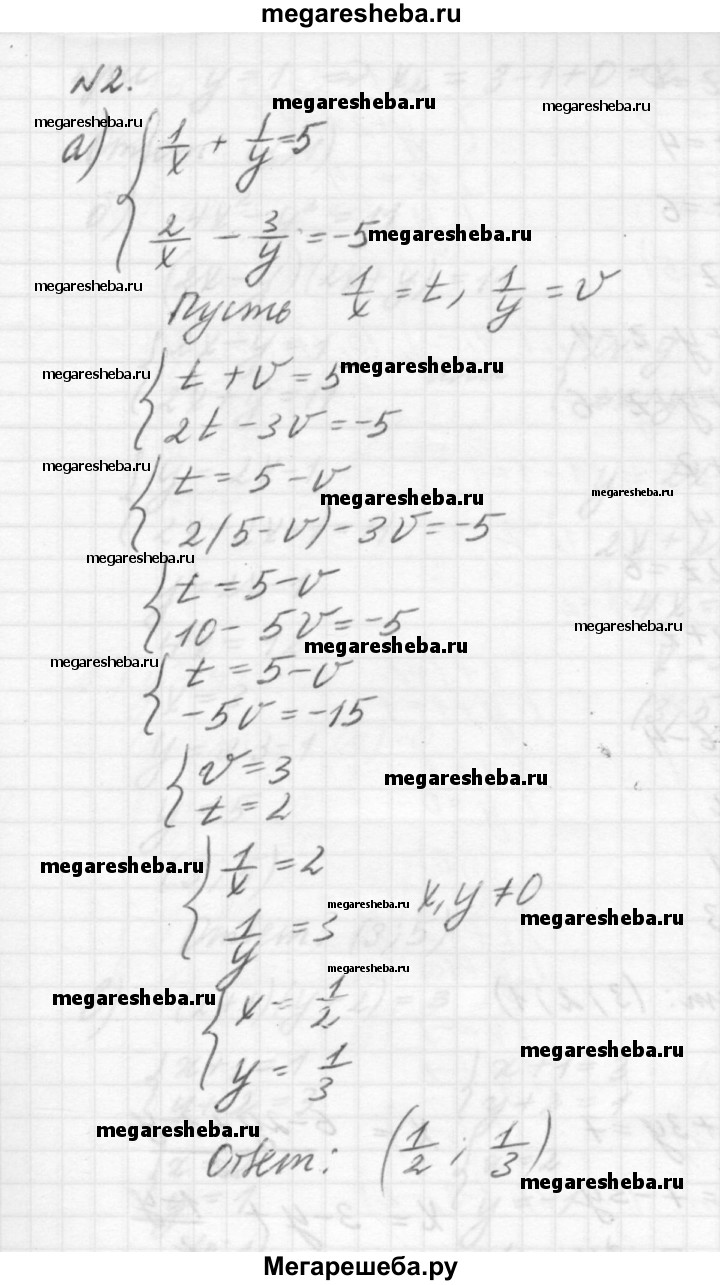 megaresheba.ru
N2.
megaresheba.ru megaresheba.ru
megaresheba.ru
а) { 1/x + 1/y = 5
2/x - 3/y = -5 megaresheba.ru
megaresheba.ru
Пусть 1/x = t, 1/y = v
megaresheba.ru { t + v = 5 megaresheba.ru
2t - 3v = -5
megaresheba.ru { t = 5 - v megaresheba.ru megaresheba.ru
2(5 - v) - 3v = -5
megaresheba.ru
{ t = 5 - v
10 - 5v = -5 megaresheba.ru megaresheba.ru
megaresheba.ru { t = 5 - v
-5v = -15
{ v = 3 megaresheba.ru
t = 2
megaresheba.ru { 1/x = 2
megaresheba.ru x, y ≠ 0 megaresheba.ru
1/y = 3
megaresheba.ru
megaresheba.ru { x = 1/2
megaresheba.ru
y = 1/3
megaresheba.ru
Ответ: (1/2 ; 1/3)
megaresheba.ru
Мегарешеба.ру